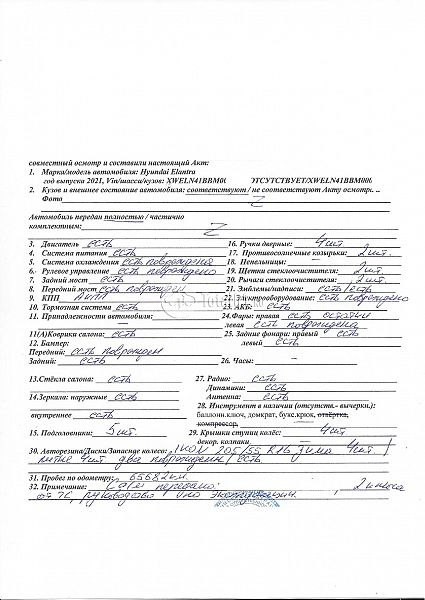 совместный осмотр и составили настоящий Акт:
1. Марка/модель автомобиля: Hyundai Elantra
год выпуска 2021, Vin/шасси/кузов: XWELN41BBM00 ЭТСУТСТВУЕТ/XWELN41BBM006
2. Кузов и внешнее состояние автомобиля: соответствуют / не соответствуют Акту осмотра.
Фото Z
Автомобиль передан полностью / частично
комплектным: Z
3. Двигатель есть 16. Ручки дверные: 4 шт.
4. Система питания есть 17. Противосолнечные козырьки: 2 шт.
5. Система охлаждения есть повреждена 18. Пепельницы: —
6. Рулевое управление есть повреждено 19. Щетки стеклоочистителя: 2 шт.
7. Задний мост есть 20. Рычаги стеклоочистителя: 2 шт.
8. Передний мост есть поврежден 21. Эмблемы/надписи: есть/есть
9. КПП АКПП 22. Электрооборудование: есть повреждено
10. Тормозная система есть 23. АКБ: есть
11. Принадлежности автомобиля: — 24. Фары: правая есть остатки
левая есть повреждена
11(А) Коврики салона: есть 25. Задние фонари: правый есть
12. Бампер: левый есть
Передний: есть поврежден
Задний: есть 26. Часы: —
13. Стёкла салона: есть 27. Радио: есть
Динамики: есть
14. Зеркала: наружные есть Антенна: есть
28. Инструмент в наличии (отсутств.- вычеркн.):
внутреннее есть баллонн.ключ, домкрат, букс.крюк, отвёртка,
компрессор.
15. Подголовники: 5 шт. 29. Крышки ступиц колёс: 4 шт
декор. колпаки —
30. Авторезина/Диски/Запасное колесо: IKON 205/55 R16 Зима 4 шт /
литые 4 шт. два повреждены / есть
31. Пробег по одометру: 65682 км.
32. Примечание: передано: 2 ключа
от ТС, руководство по эксплуатации.